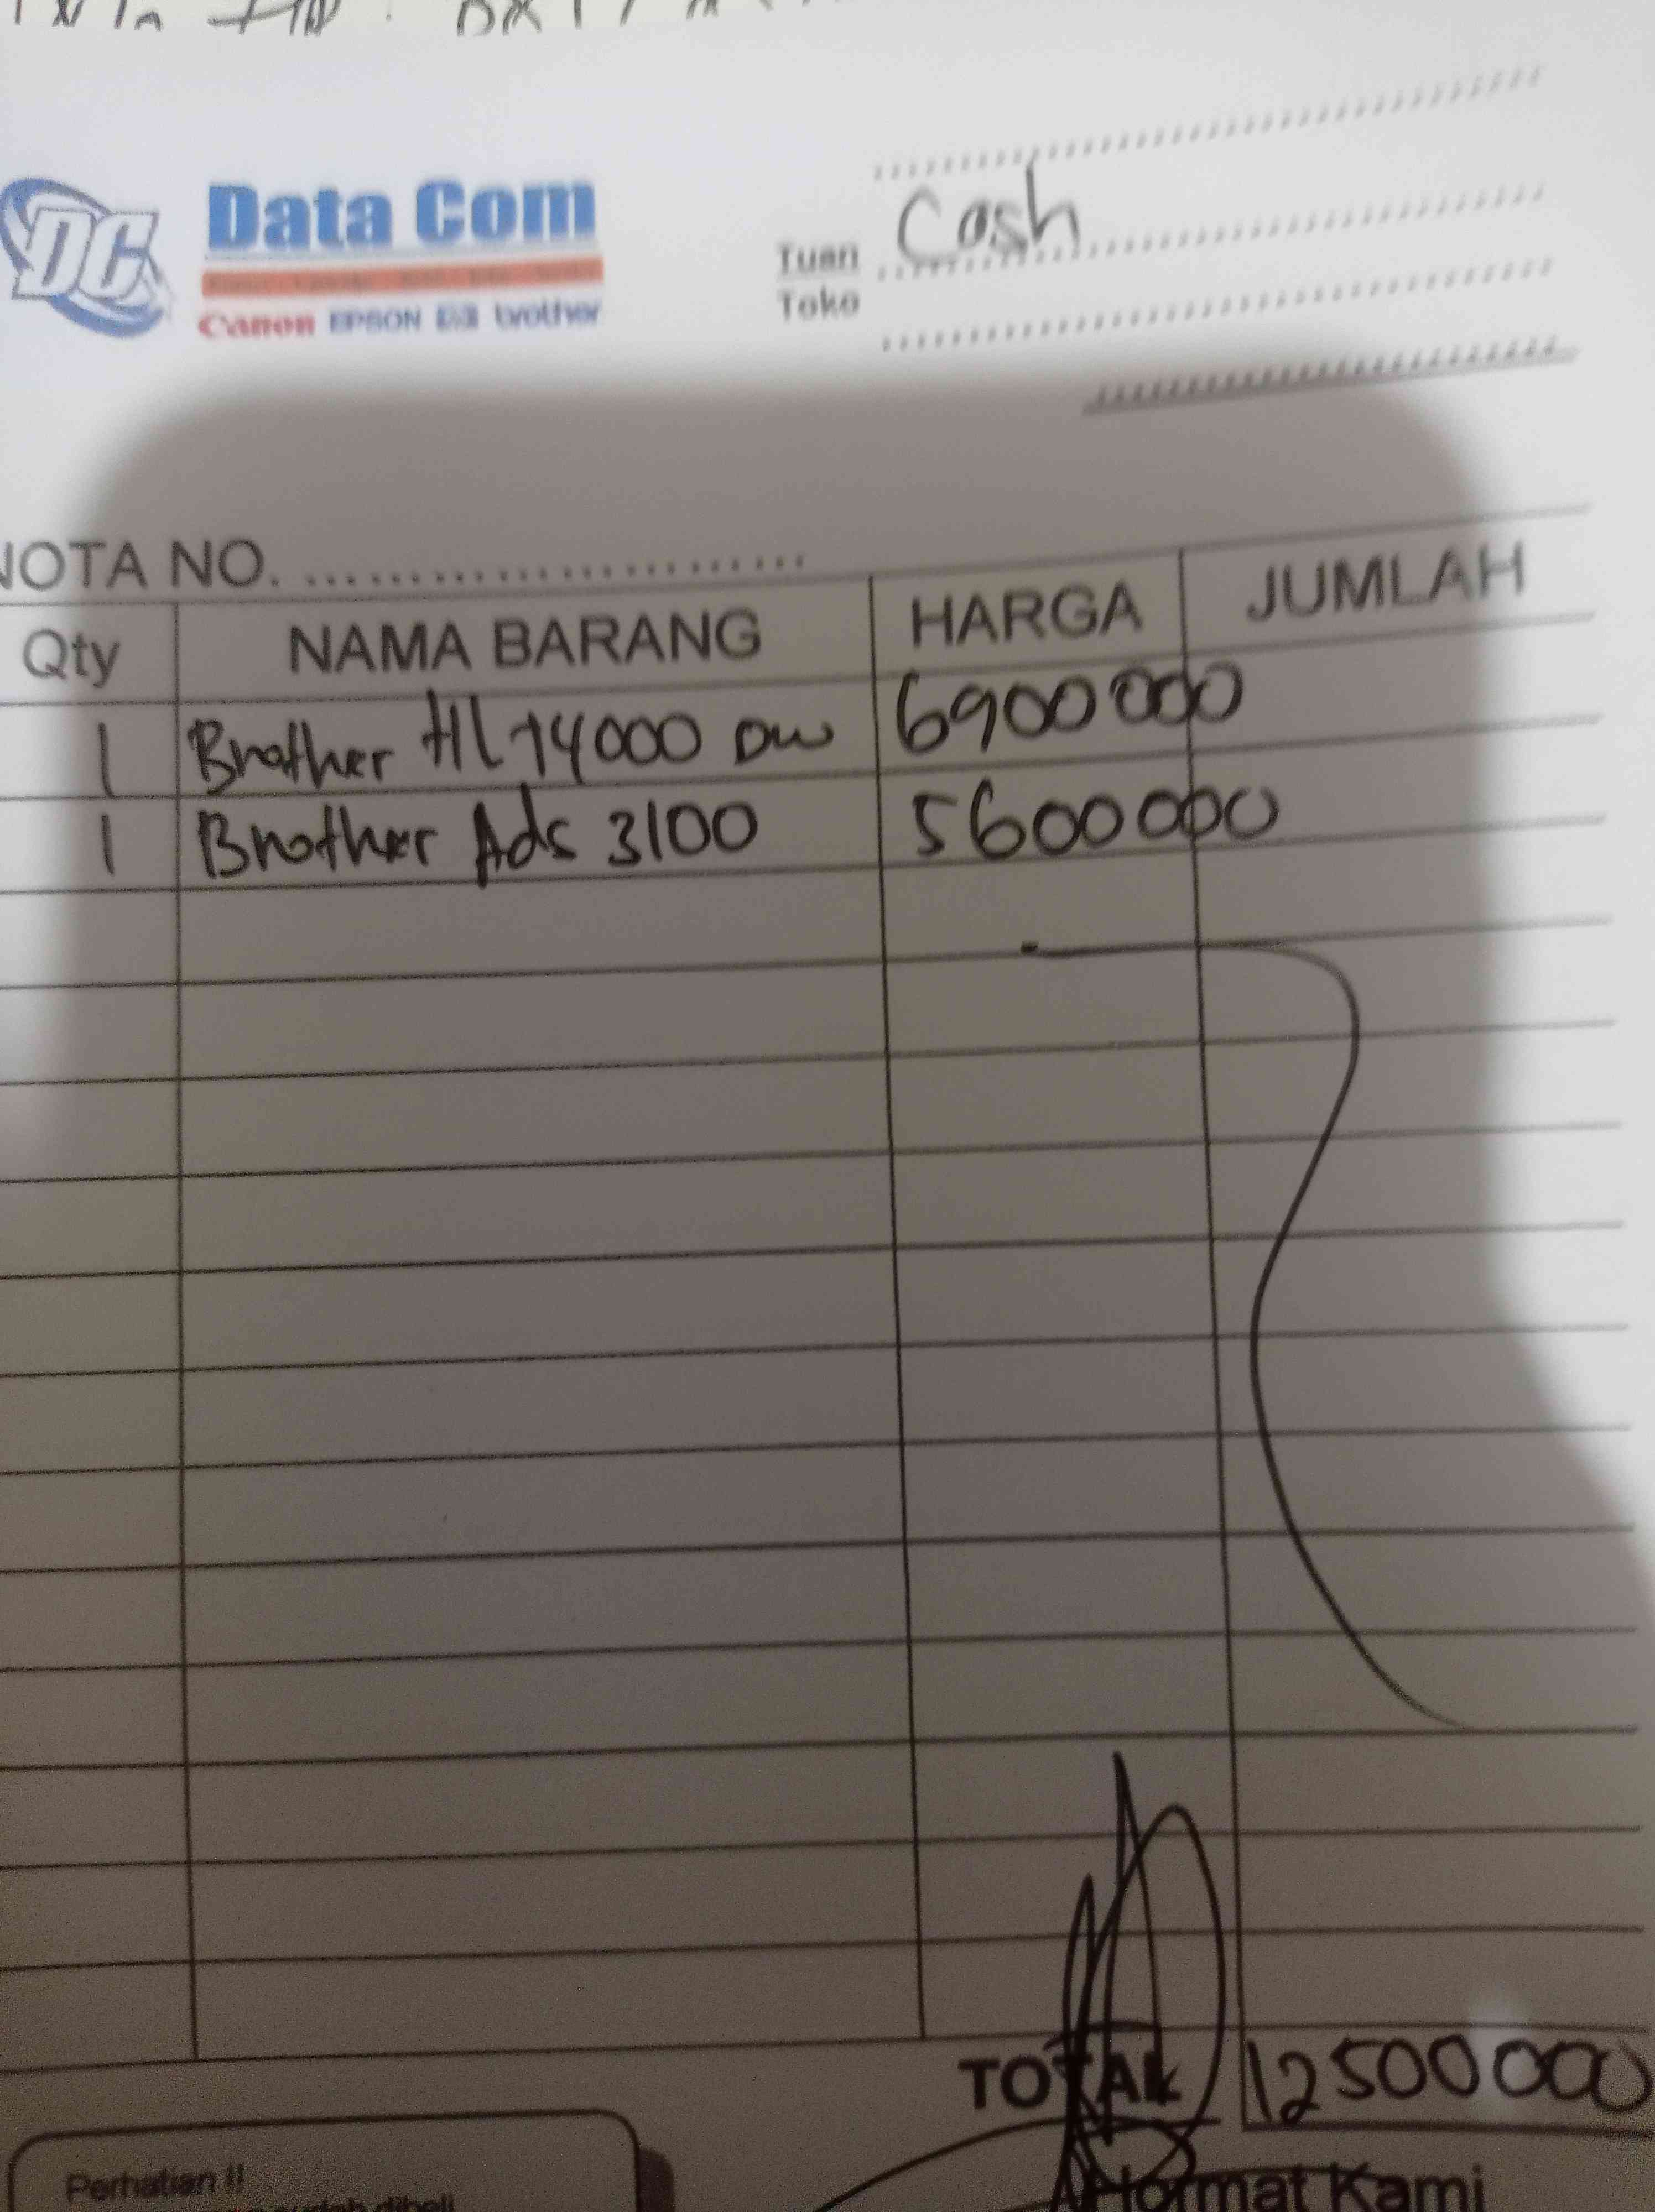 DC
Data Com
Canon EPSON brother
Cash
Tuan
Toko
NOTA NO. ........................
Qty NAMA BARANG HARGA JUMLAH
1 Brother HL T4000 DW 6900000
1 Brother Ads 3100 5600000
TOTAL 12500000
Perhatian !!
sudah dibeli
Hormat Kami